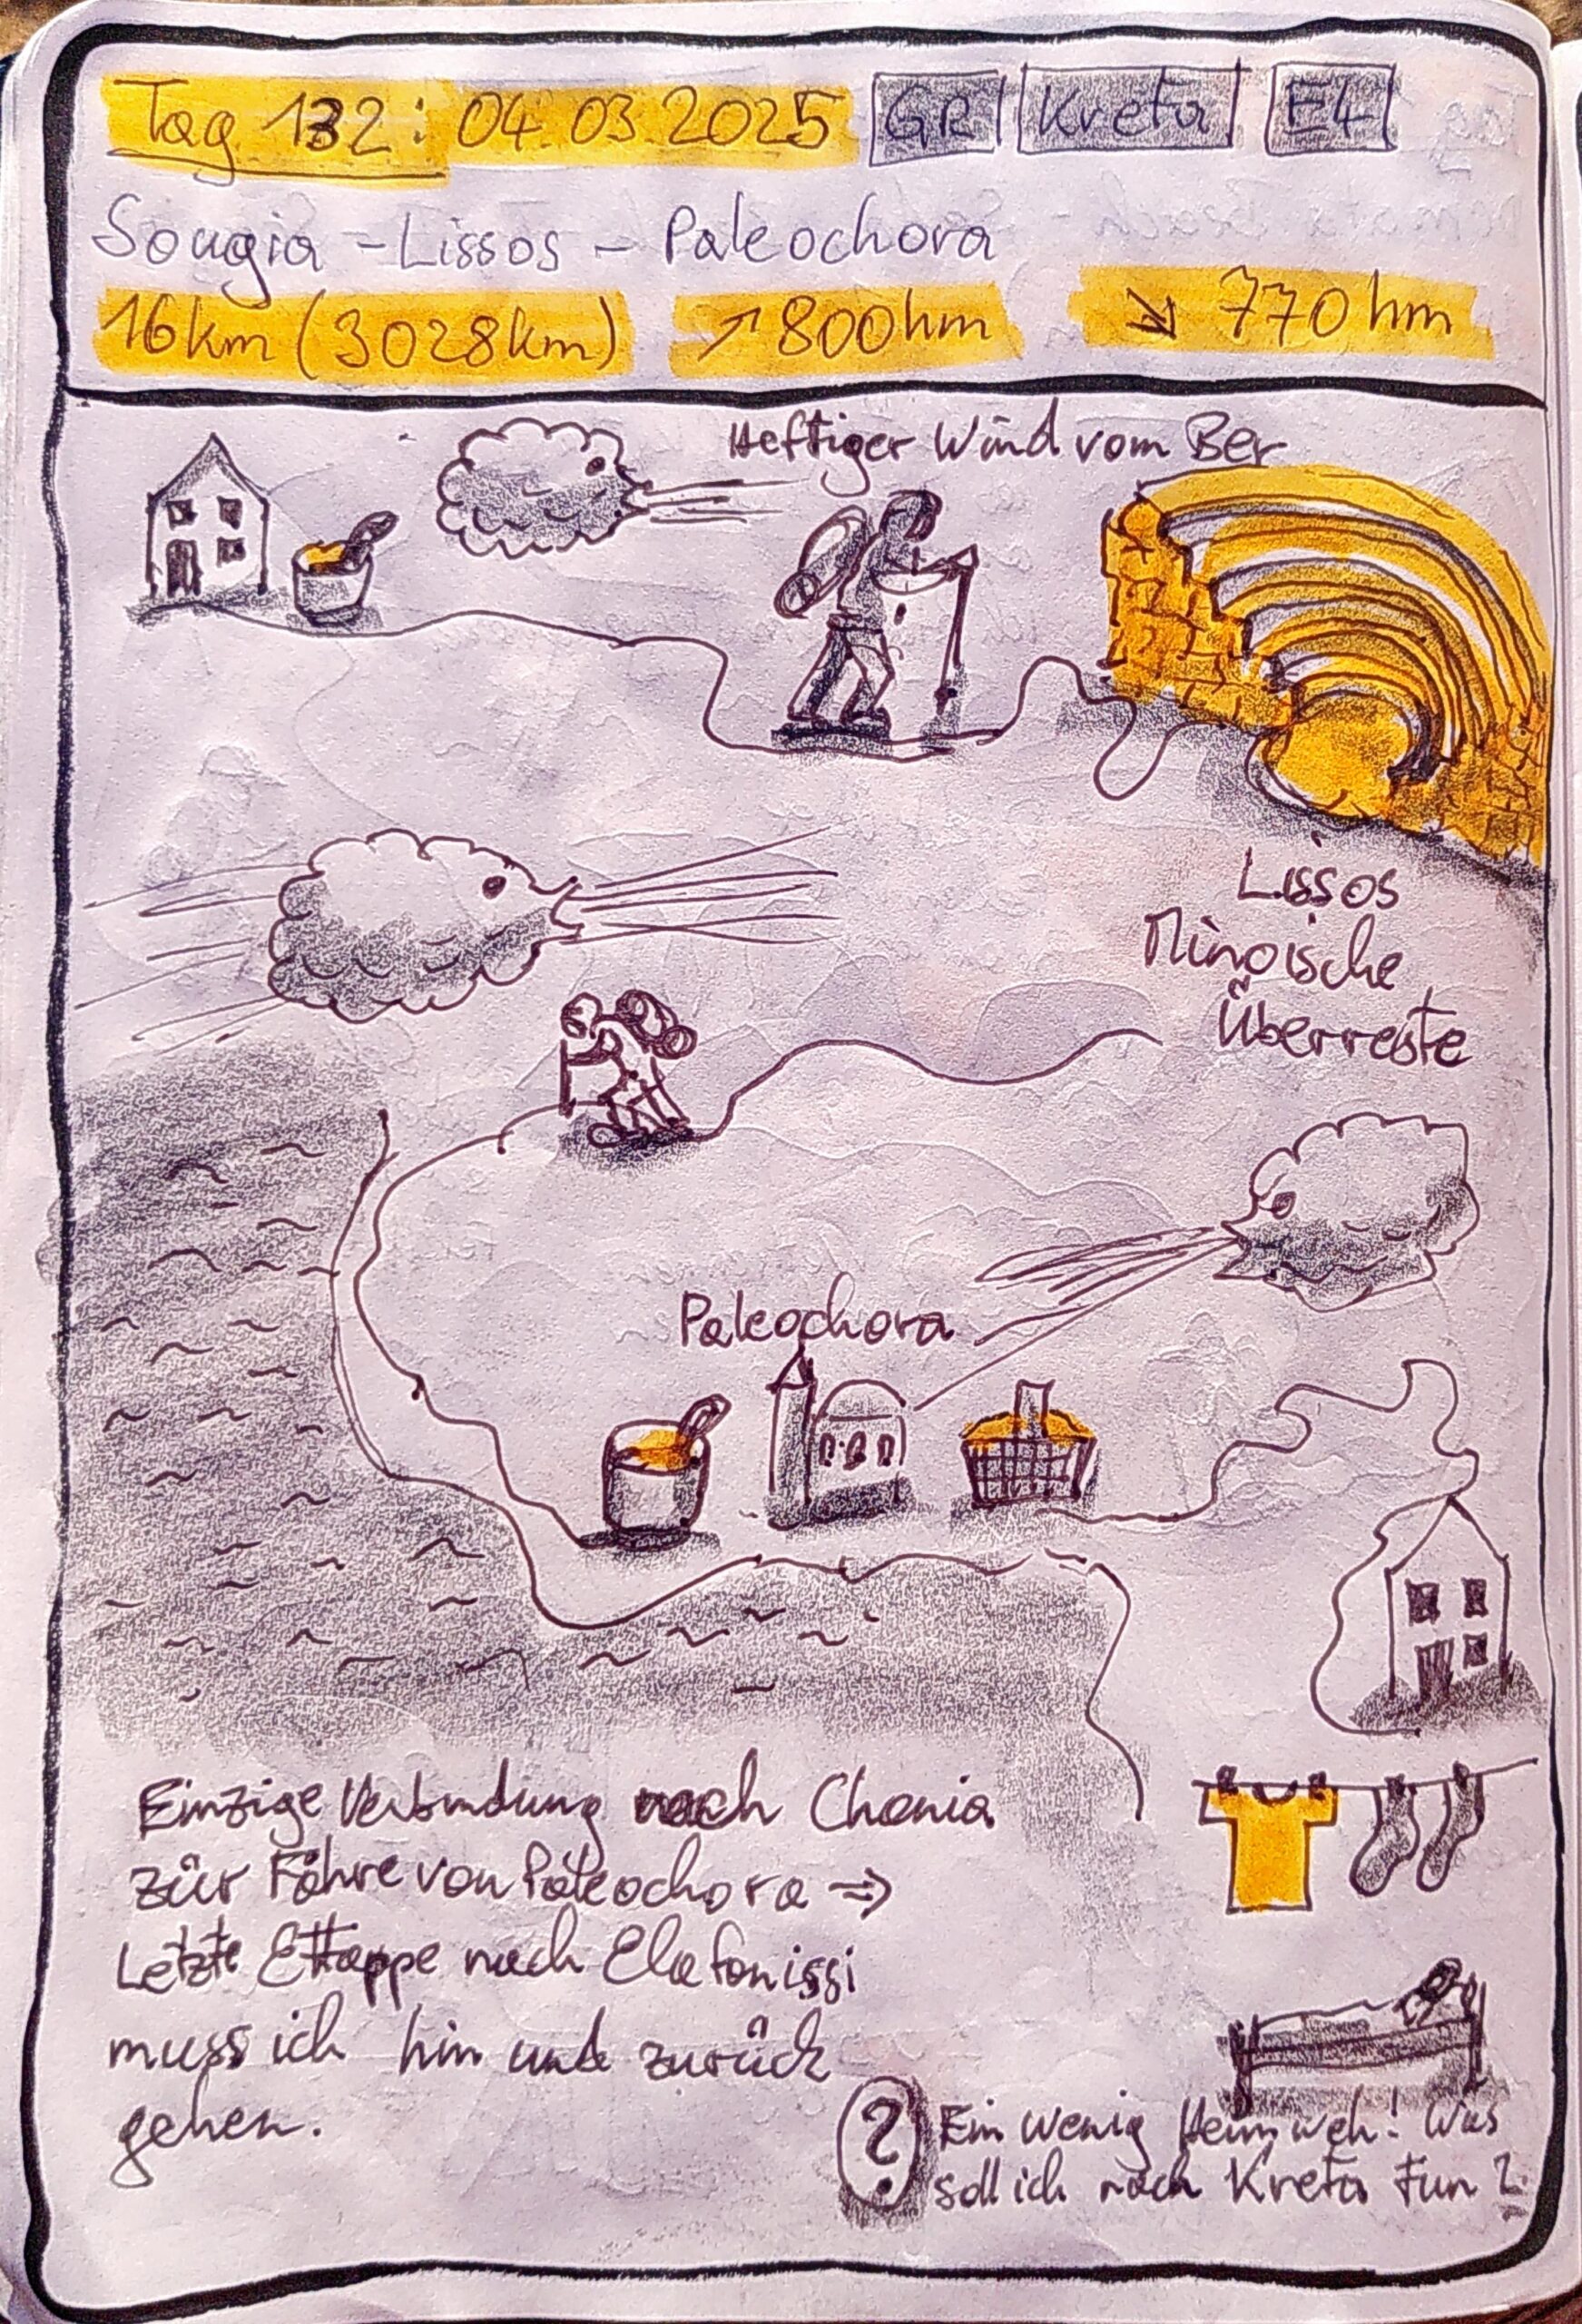 Tag 132: 04.03.2025 GR Kreta E4
Sougia - Lissos - Paleochora
16km (3028km) ↗ 800hm ↘ 770hm
Heftiger Wind vom Ber
Lissos
Minoische
Überreste
Paleochora
Einzige Verbindung nach Chania
zur Fähre von Paleochora ⇒
Letzte Ettappe nach Elafonissi
muss ich hin und zurück
gehen.
? Ein wenig Heimweh! Was
soll ich nach Kreta tun?